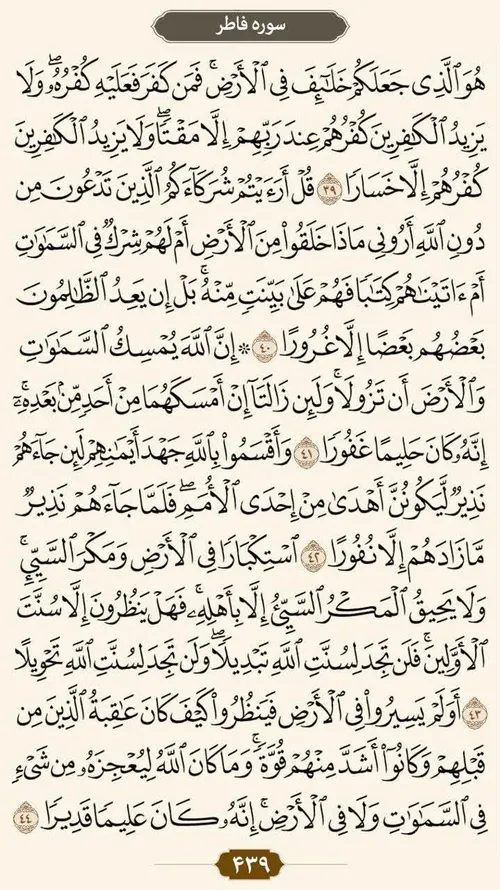 سوره فاطر
هُوَ ٱلَّذِى جَعَلَكُمْ خَلَـٰٓئِفَ فِى ٱلْأَرْضِ ۚ فَمَن كَفَرَ فَعَلَيْهِ كُفْرُهُۥ ۖ وَلَا
يَزِيدُ ٱلْكَـٰفِرِينَ كُفْرُهُمْ عِندَ رَبِّهِمْ إِلَّا مَقْتًا ۖ وَلَا يَزِيدُ ٱلْكَـٰفِرِينَ
كُفْرُهُمْ إِلَّا خَسَارًا ۳۹ قُلْ أَرَءَيْتُمْ شُرَكَآءَكُمُ ٱلَّذِينَ تَدْعُونَ مِن
دُونِ ٱللَّهِ أَرُونِى مَاذَا خَلَقُوا۟ مِنَ ٱلْأَرْضِ أَمْ لَهُمْ شِرْكٌ فِى ٱلسَّمَـٰوَٰتِ
أَمْ ءَاتَيْنَـٰهُمْ كِتَـٰبًا فَهُمْ عَلَىٰ بَيِّنَتٍ مِّنْهُ ۚ بَلْ إِن يَعِدُ ٱلظَّـٰلِمُونَ
بَعْضُهُم بَعْضًا إِلَّا غُرُورًا ۴۰ * إِنَّ ٱللَّهَ يُمْسِكُ ٱلسَّمَـٰوَٰتِ
وَٱلْأَرْضَ أَن تَزُولَا ۚ وَلَئِن زَالَتَآ إِنْ أَمْسَكَهُمَا مِنْ أَحَدٍ مِّنۢ بَعْدِهِۦٓ ۚ
إِنَّهُۥ كَانَ حَلِيمًا غَفُورًا ۴۱ وَأَقْسَمُوا۟ بِٱللَّهِ جَهْدَ أَيْمَـٰنِهِمْ لَئِن جَآءَهُمْ
نَذِيرٌ لَّيَكُونُنَّ أَهْدَىٰ مِنْ إِحْدَى ٱلْأُمَمِ ۖ فَلَمَّا جَآءَهُمْ نَذِيرٌ
مَّا زَادَهُمْ إِلَّا نُفُورًا ۴۲ ٱسْتِكْبَارًا فِى ٱلْأَرْضِ وَمَكْرَ ٱلسَّيِّئِ ۚ
وَلَا يَحِيقُ ٱلْمَكْرُ ٱلسَّيِّئُ إِلَّا بِأَهْلِهِۦ ۚ فَهَلْ يَنظُرُونَ إِلَّا سُنَّتَ
ٱلْأَوَّلِينَ ۚ فَلَن تَجِدَ لِسُنَّتِ ٱللَّهِ تَبْدِيلًا ۖ وَلَن تَجِدَ لِسُنَّتِ ٱللَّهِ تَحْوِيلًا
۴۳ أَوَلَمْ يَسِيرُوا۟ فِى ٱلْأَرْضِ فَيَنظُرُوا۟ كَيْفَ كَانَ عَـٰقِبَةُ ٱلَّذِينَ مِن
قَبْلِهِمْ وَكَانُوٓا۟ أَشَدَّ مِنْهُمْ قُوَّةً ۚ وَمَا كَانَ ٱللَّهُ لِيُعْجِزَهُۥ مِن شَىْءٍ
فِى ٱلسَّمَـٰوَٰتِ وَلَا فِى ٱلْأَرْضِ ۚ إِنَّهُۥ كَانَ عَلِيمًا قَدِيرًا ۴۴
۴۳۹